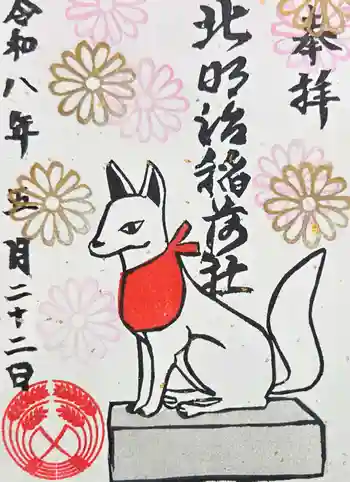 奉拝
北明治稲荷社
令和八年
五月二十二日